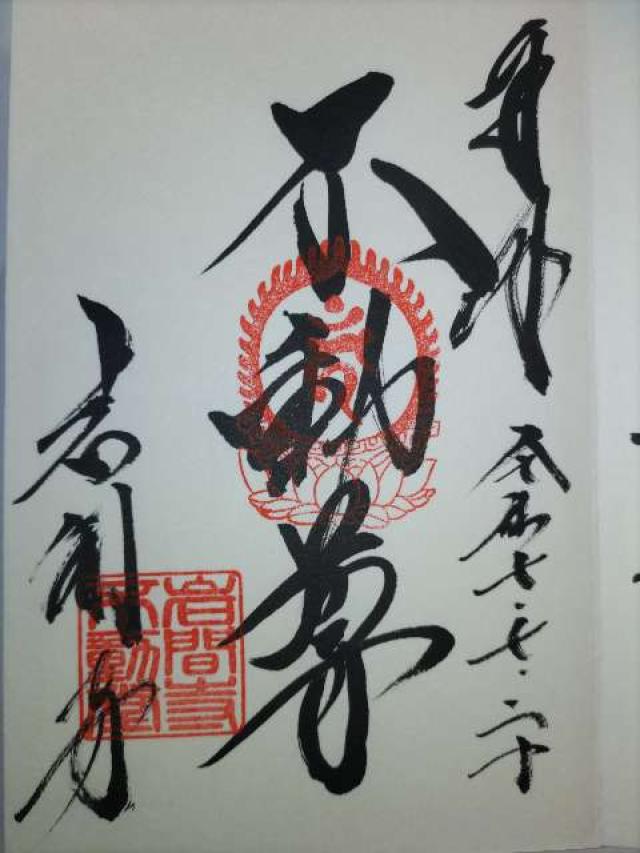 奉拝
令和七・七・二十
不動尊
岩間寺
岩間寺
不動堂